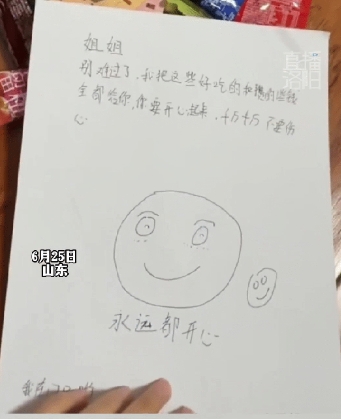 姐姐
别难过了，我把这些好吃的和我的零钱
全都给你，你要开心起来，千万千万不要伤
心
6月25日
山东
永远都开心